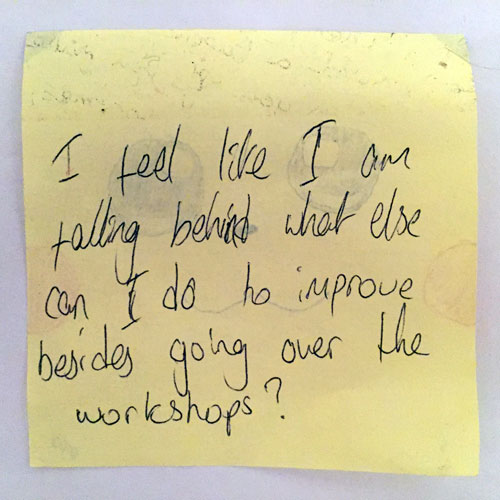 I feel like I am
falling behind what else
can I do to improve
besides going over the
workshops?